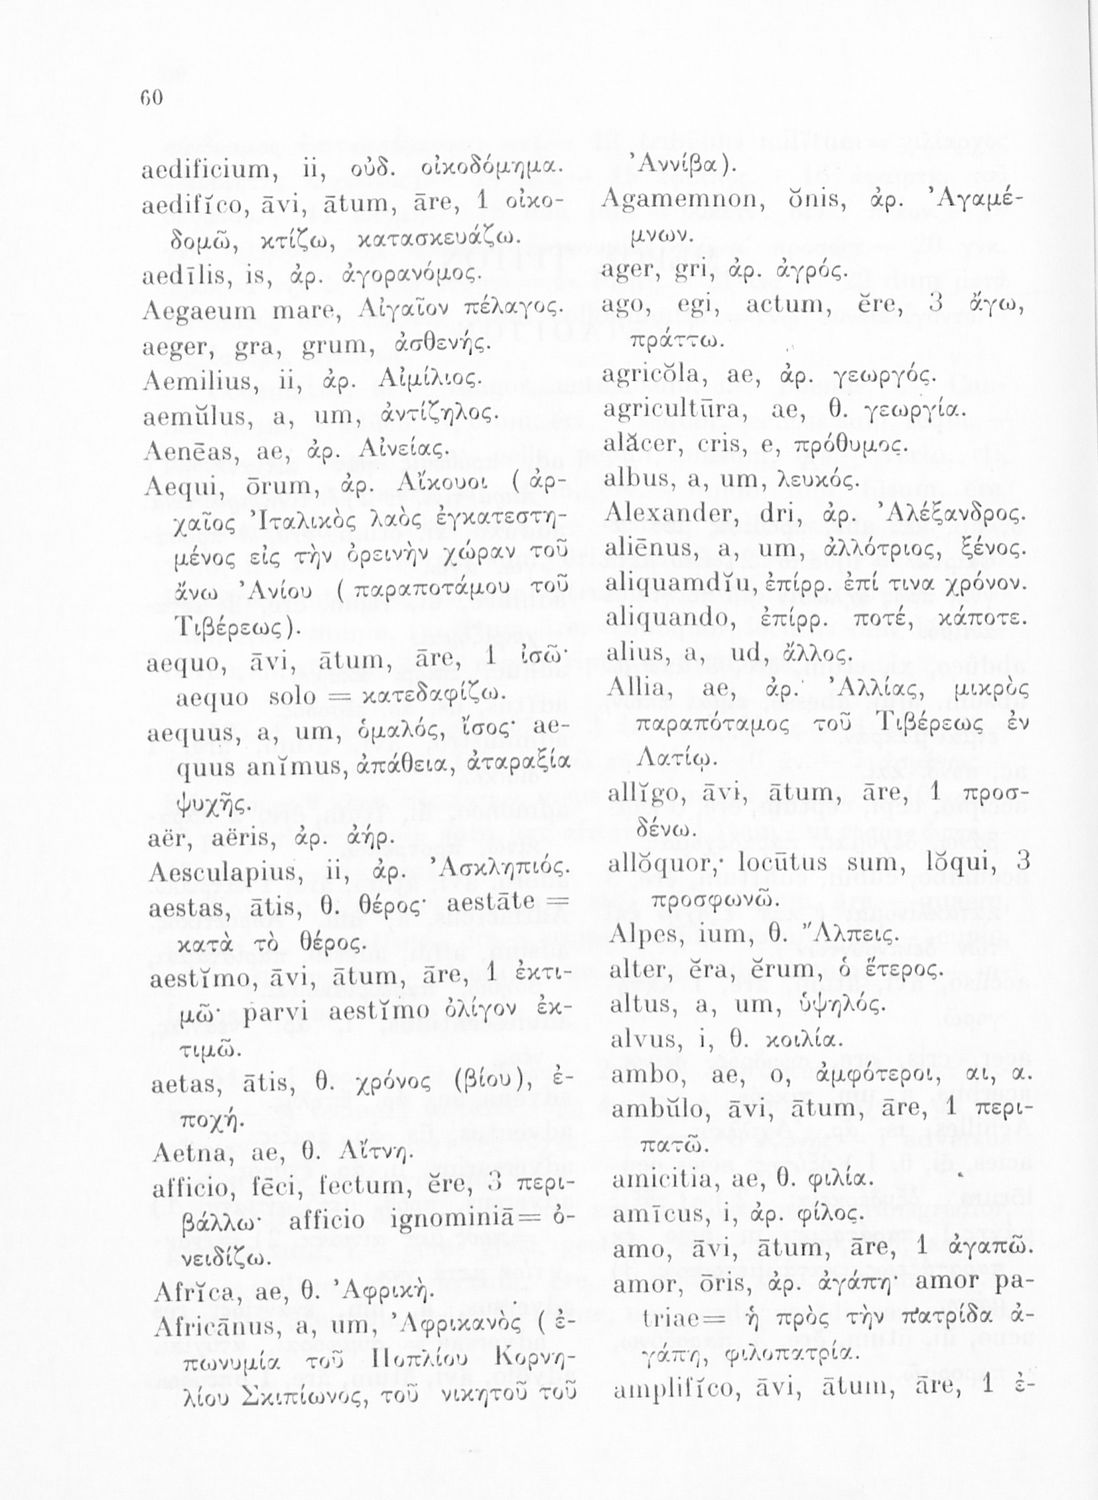 60
aedificium, ii, οὐδ. οἰκοδόμημα.
aedifĭco, āvi, ātum, āre, 1 οἰκο-
δομῶ, κτίζω, κατασκευάζω.
aedīlis, is, ἀρ. ἀγορανόμος.
Aegaeum mare, Αἰγαῖον πέλαγος.
aeger, gra, grum, ἀσθενής.
Aemilius, ii, ἀρ. Αἰμίλιος.
aemŭlus, a, um, ἀντίζηλος.
Aenēas, ae, ἀρ. Αἰνείας.
Aequi, ōrum, ἀρ. Αἴκουοι (ἀρ-
χαῖος Ἰταλικὸς λαὸς ἐγκατεστη-
μένος εἰς τὴν ὀρεινὴν χώραν τοῦ
ἄνω Ἀνίου (παραποτάμου τοῦ
Τιβέρεως).
aequo, āvi, ātum, āre, 1 ἰσῶ·
aequo solo = κατεδαφίζω.
aequus, a, um, ὁμαλός, ἴσος· ae-
quus anĭmus, ἀπάθεια, ἀταραξία
ψυχῆς.
aër, aëris, ἀρ. ἀήρ.
Aesculapius, ii, ἀρ. Ἀσκληπιός.
aestas, ātis, θ. θέρος· aestāte =
κατὰ τὸ θέρος.
aestĭmo, āvi, ātum, āre, 1 ἐκτι-
μῶ· parvi aestĭmo ὀλίγον ἐκ-
τιμῶ.
aetas, ātis, θ. χρόνος (βίου), ἐ-
ποχή.
Aetna, ae, θ. Αἴτνη.
afficio, fēci, fectum, ĕre, 3 περι-
βάλλω· afficio ignominiā= ὀ-
νειδίζω.
Afrĭca, ae, θ. Ἀφρικὴ.
Africānus, a, um, Ἀφρικανὸς (ἐ-
πωνυμία τοῦ Ποπλίου Κορνη-
λίου Σκιπίωνος, τοῦ νικητοῦ τοῦ
Ἀννίβα).
Agamemnon, ŏnis, ἀρ. Ἀγαμέ-
μνων.
ager, gri, ἀρ. ἀγρός.
ago, egi, actum, ĕre, 3 ἄγω,
πράττω.
agricŏla, ae, ἀρ. γεωργός.
agricultūra, ae, θ. γεωργία.
alăcer, cris, e, πρόθυμος.
albus, a, um, λευκός.
Alexander, dri, ἀρ. Ἀλέξανδρος.
aliēnus, a, um, ἀλλότριος, ξένος.
aliquamdĭu, ἐπίρρ. ἐπί τινα χρόνον.
aliquando, ἐπίρρ. ποτέ, κάποτε.
alius, a, ud, ἄλλος.
Allia, ae, ἀρ. Ἀλλίας, μικρὸς
παραπόταμος τοῦ Τιβέρεως ἐν
Λατίῳ.
allĭgo, āvi, ātum, āre, 1 προσ-
δένω.
allŏquor, locūtus sum, lŏqui, 3
προσφωνῶ.
Alpes, ium, θ. Ἄλπεις.
alter, ĕra, ĕrum, ὁ ἕτερος.
altus, a, um, ὑψηλός.
alvus, i, θ. κοιλία.
ambo, ae, o, ἀμφότεροι, αι, α.
ambŭlo, āvi, ātum, āre, 1 περι-
πατῶ.
amicitia, ae, θ. φιλία.
amīcus, i, ἀρ. φίλος.
amo, āvi, ātum, āre, 1 ἀγαπῶ.
amor, ōris, ἀρ. ἀγάπη· amor pa-
triae= ἡ πρὸς τὴν πατρίδα ἀ-
γάπη, φιλοπατρία.
amplifĭco, āvi, ātum, āre, 1 ἐ-